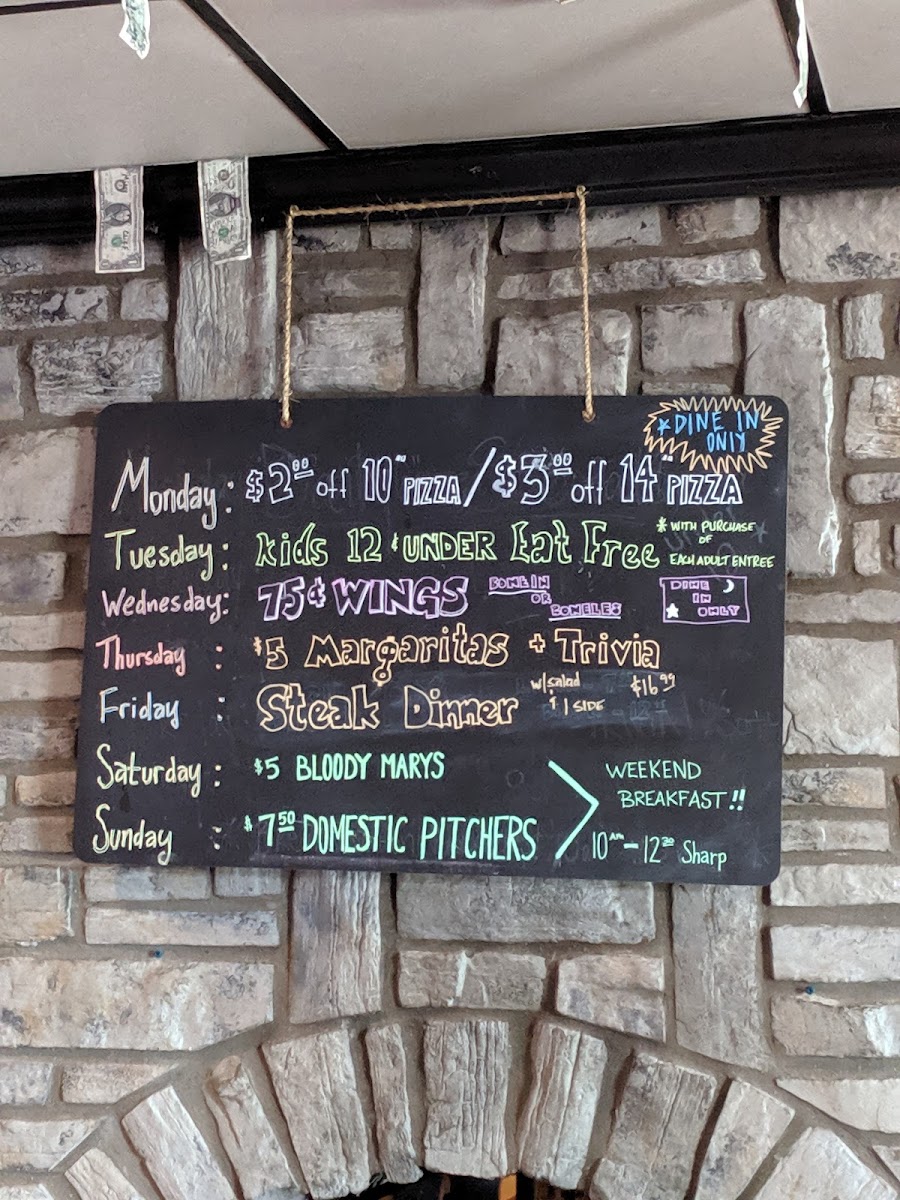 *DINE IN
ONLY
Monday: $2⁰⁰ off 10" PIZZA / $3⁰⁰ off 14" PIZZA
Tuesday: Kids 12 & UNDER Eat Free * WITH PURCHASE
OF
EACH ADULT ENTREE
Wednesday: 75¢ WINGS BONE IN
OR
BONELES
DINE
IN
ONLY
Thursday : $5 Margaritas + Trivia
Friday : Steak Dinner w/salad
& 1 SIDE
$16⁹⁹
Saturday : $5 BLOODY MARYS
Sunday : $7⁵⁰ DOMESTIC PITCHERS
WEEKEND
BREAKFAST!!
10ᴬᴹ-12³⁰ Sharp